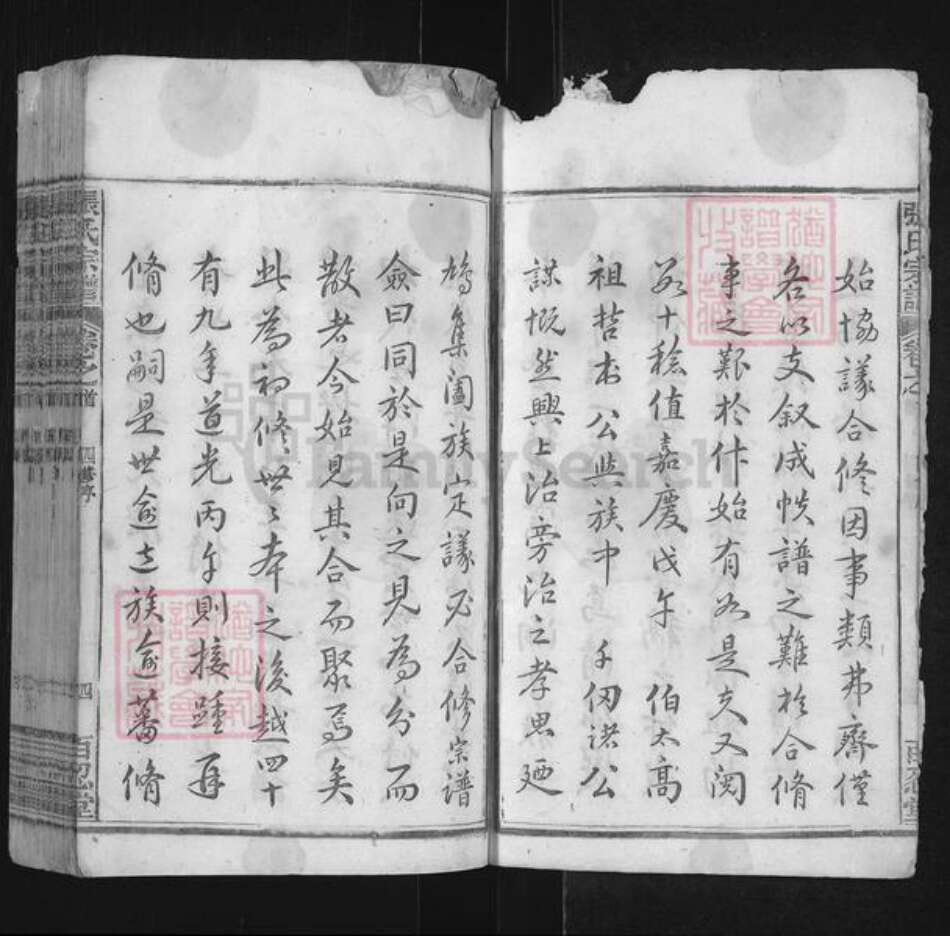 始協議合修因事類弗齊僅
各以支叙成帙譜之難於合脩
事之艱於作始有如是夫又閲
數十稔值嘉慶戊午 伯太高
祖哲 公與族中 千仞諸公
謀慨然興上治旁治之孝思廼
鳩集闔族定議必合修宗譜
僉曰同於是向之見為分而
散者今始見其合而聚焉矣
此為初修世〻本之後越四十
有九年道光丙午則接踵再
脩也嗣是世愈遠族愈蕃脩
張氏宗譜
張氏宗譜
四
FamilySearch